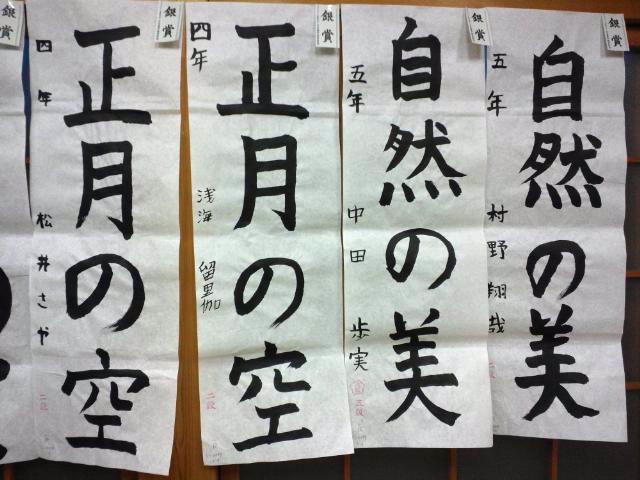 銀賞
正月の空
四年
松井さや
二段
銀賞
正月の空
四年
浅海 留里伽
二段
銀賞
自然の美
五年
中田 歩実
三段
銀賞
自然の美
五年
村野翔哉
銀賞